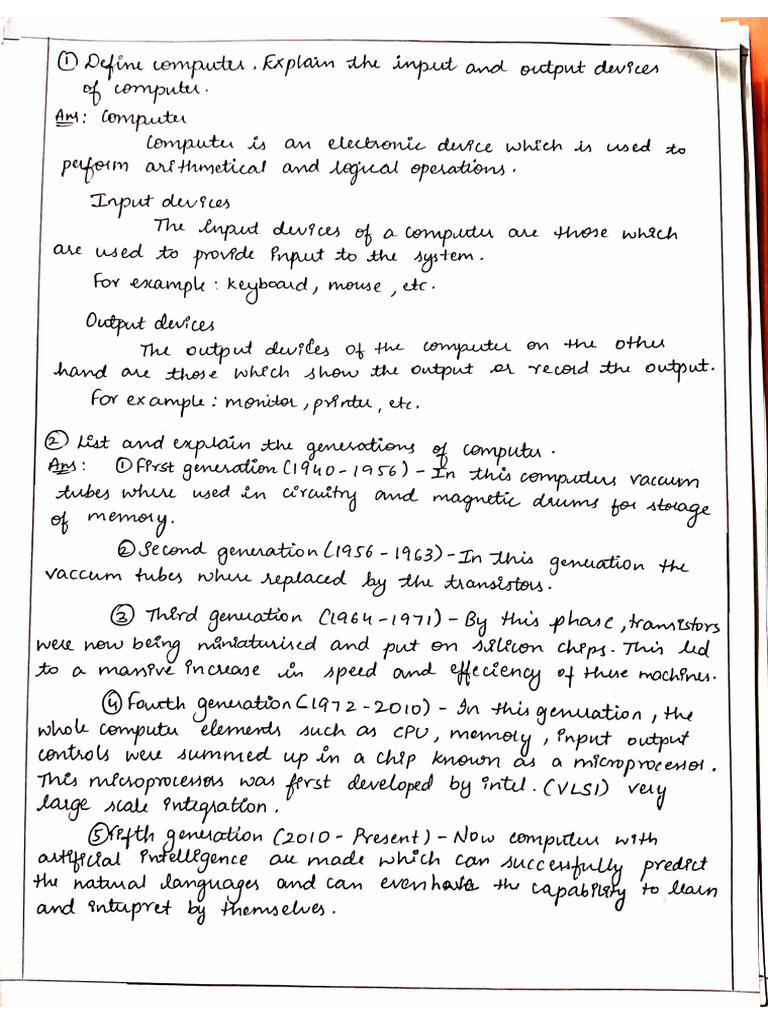 ① Define computer. Explain the input and output devices
of computer.
Ans: Computer
Computer is an electronic device which is used to
perform arithmetical and logical operations.
Input devices
The input devices of a computer are those which
are used to provide input to the system.
For example: keyboard, mouse, etc.
Output devices
The output devices of the computer on the other
hand are those which show the output or record the output.
For example: monitor, printer, etc.
② List and explain the generations of computer.
Ans: ① First generation (1940-1956) - In this computers vaccum
tubes where used in circuitry and magnetic drums for storage
of memory.
② Second generation (1956-1963) - In this generation the
vaccum tubes where replaced by the transistors.
③ Third generation (1964-1971) - By this phase, transistors
were now being miniaturised and put on silicon chips. This led
to a massive increase in speed and effeciency of these machines.
④ Fourth generation (1972-2010) - In this generation, the
whole computer elements such as CPU, memory, input output
controls were summed up in a chip known as a microprocessor.
This microprocessors was first developed by intel. (VLSI) very
large scale integration.
⑤ Fifth generation (2010-Present) - Now computers with
artificial intelligence are made which can successfully predict
the natural languages and can even have the capability to learn
and intrpret by themselves.